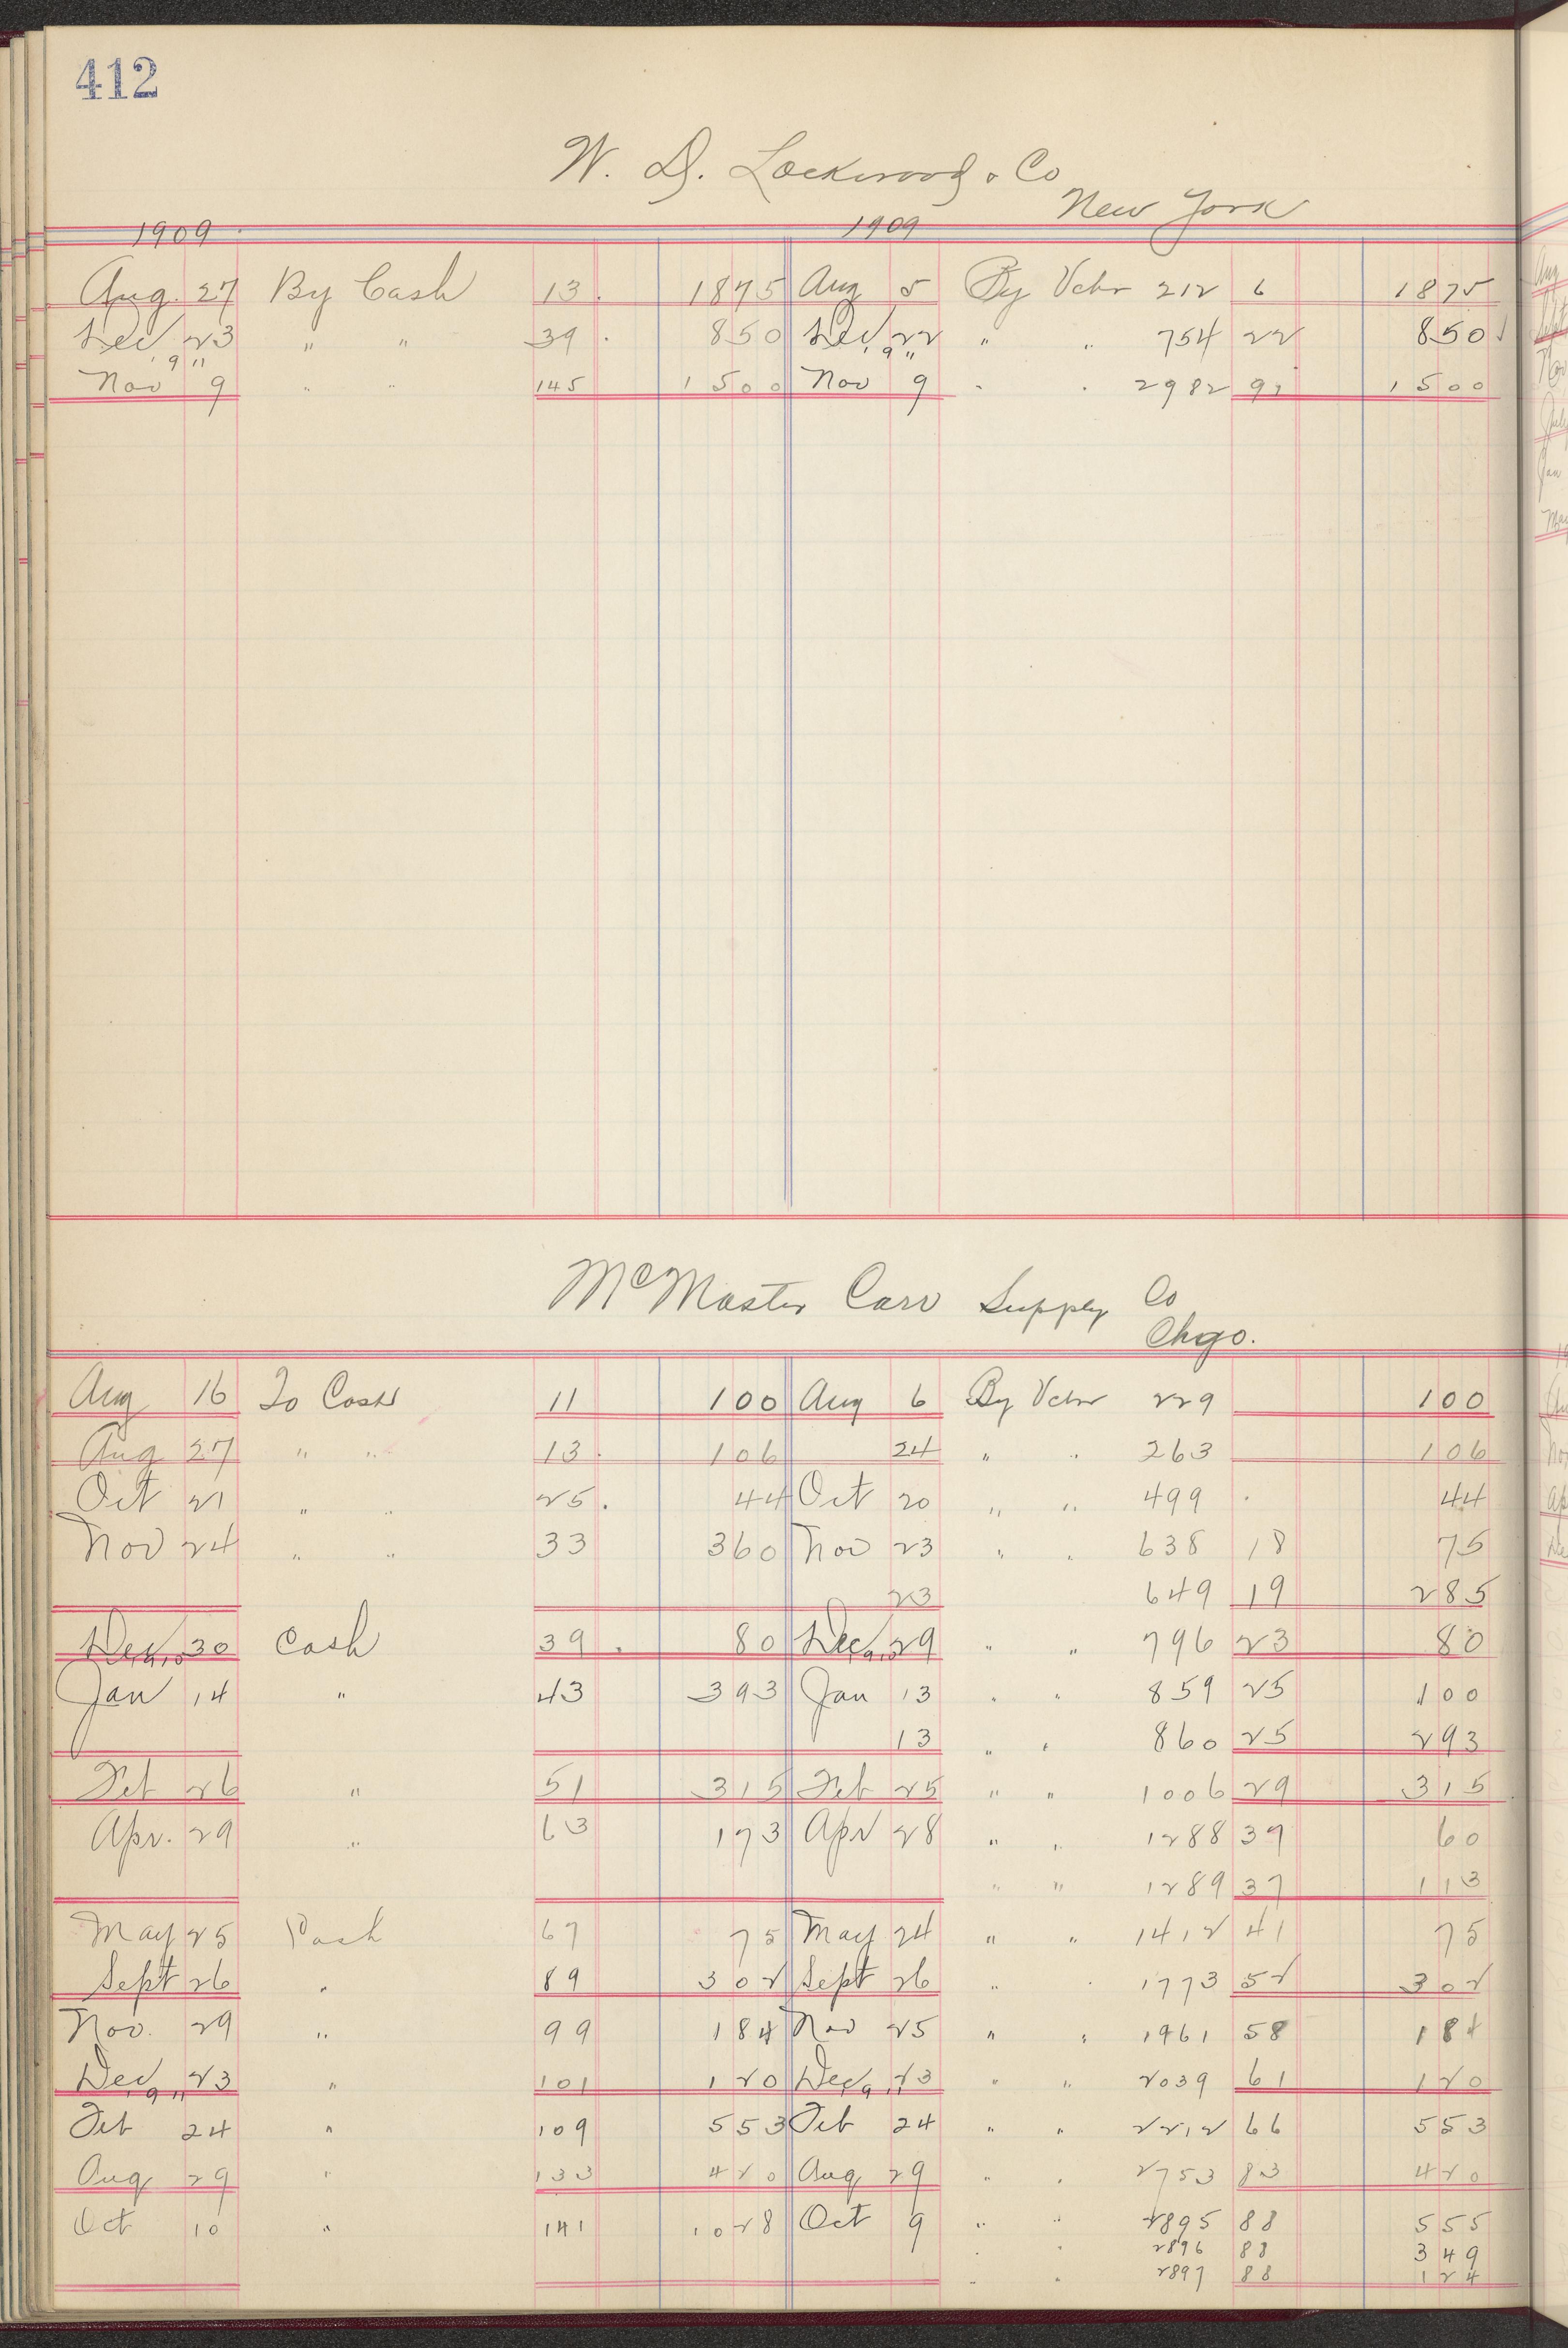 412
W. D. Lockwood & Co
New York
1909 1909
Aug. 27 By Cash 13. 1875 Aug 5 By Vchr 212 6 1875
Dec 23 " " 39. 850 Dec 22 " " 754 22 850
'9 11 '9 11
Nov 9 " " 145 1500 Nov 9 " " 2982 91 1500
McMaster Carr Supply Co
Chgo.
Aug 16 To Cash 11 100 Aug 6 By Vchr 229 100
Aug 27 " " 13. 106 24 " " 263 106
Oct 21 " " 25. 44 Oct 20 " " 499 44
Nov 24 " " 33 360 Nov 23 " " 638 18 75
23 649 19 285
Dec 30 Cash 39. 80 Dec 29 " " 796 23 80
1910 1910
Jan 14 " 43 393 Jan 13 " " 859 25 100
13 " " 860 25 293
Feb 26 " 51 315 Feb 25 " " 1006 29 315
Apr. 29 " 63 173 Apr 28 " " 1288 39 60
" " 1289 37 113
May 25 Cash 67 75 May 24 " " 1412 41 75
Sept 26 " 89 302 Sept 26 " " 1773 52 302
Nov. 29 " 99 184 Nov 25 " " 1961 58 184
Dec 23 " 101 120 Dec 23 " " 2039 61 120
'9 11 '9 11
Feb 24 " 109 553 Feb 24 " " 2212 66 553
Aug 29 " 133 420 Aug 29 " " 2753 83 420
Oct 10 " 141 1028 Oct 9 " " 2895 88 555
" " 2896 88 349
" " 2897 88 124